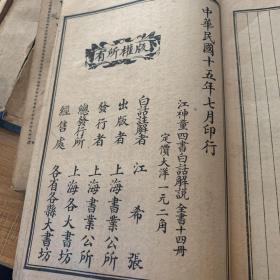 中華民國十五年七月印行
江神童四書白話解說全書十四冊
定價大洋一元二角
版權所有
白話註解者 江希張
出版者 上海書業公所
發行者 上海書業公所
總發行所 上海各大書坊
經售處 各省各縣大書坊